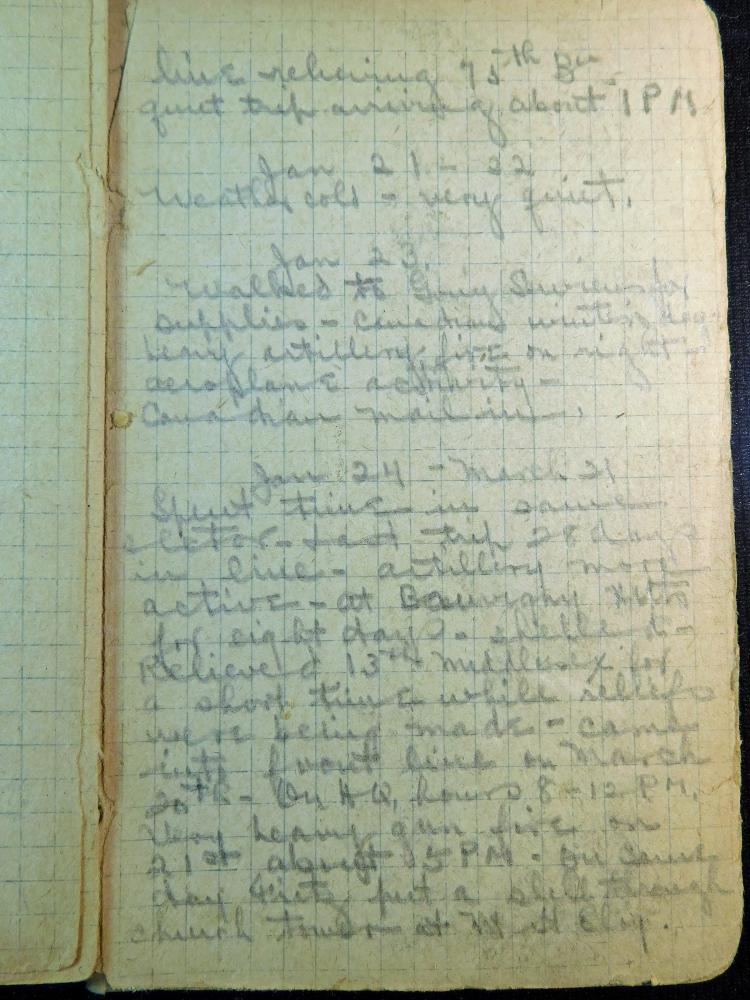 line relieving 75th Bn
quiet trip arriving about 1 PM
Jan 21 - 22
Weather cold - very quiet.
Jan 23.
Walked to Servins for
supplies - Canadian
heavy artillery fire on right -
aeroplane activity -
Canadian mail in.
Jan 24 - March 21
Spent time in same
sector - Last trip 28 days
in line - artillery more
active - at Bouvigny
for eight days - shelled -
Relieved 13th Middlesex for
a short time while reliefs
were being made - came
into front line on March
20th - On H Q, hours 8 - 12 PM.
Very heavy gun fire on
21st about 5 PM - On same
day Fritz put a shell through
church tower at Mt St Eloy.